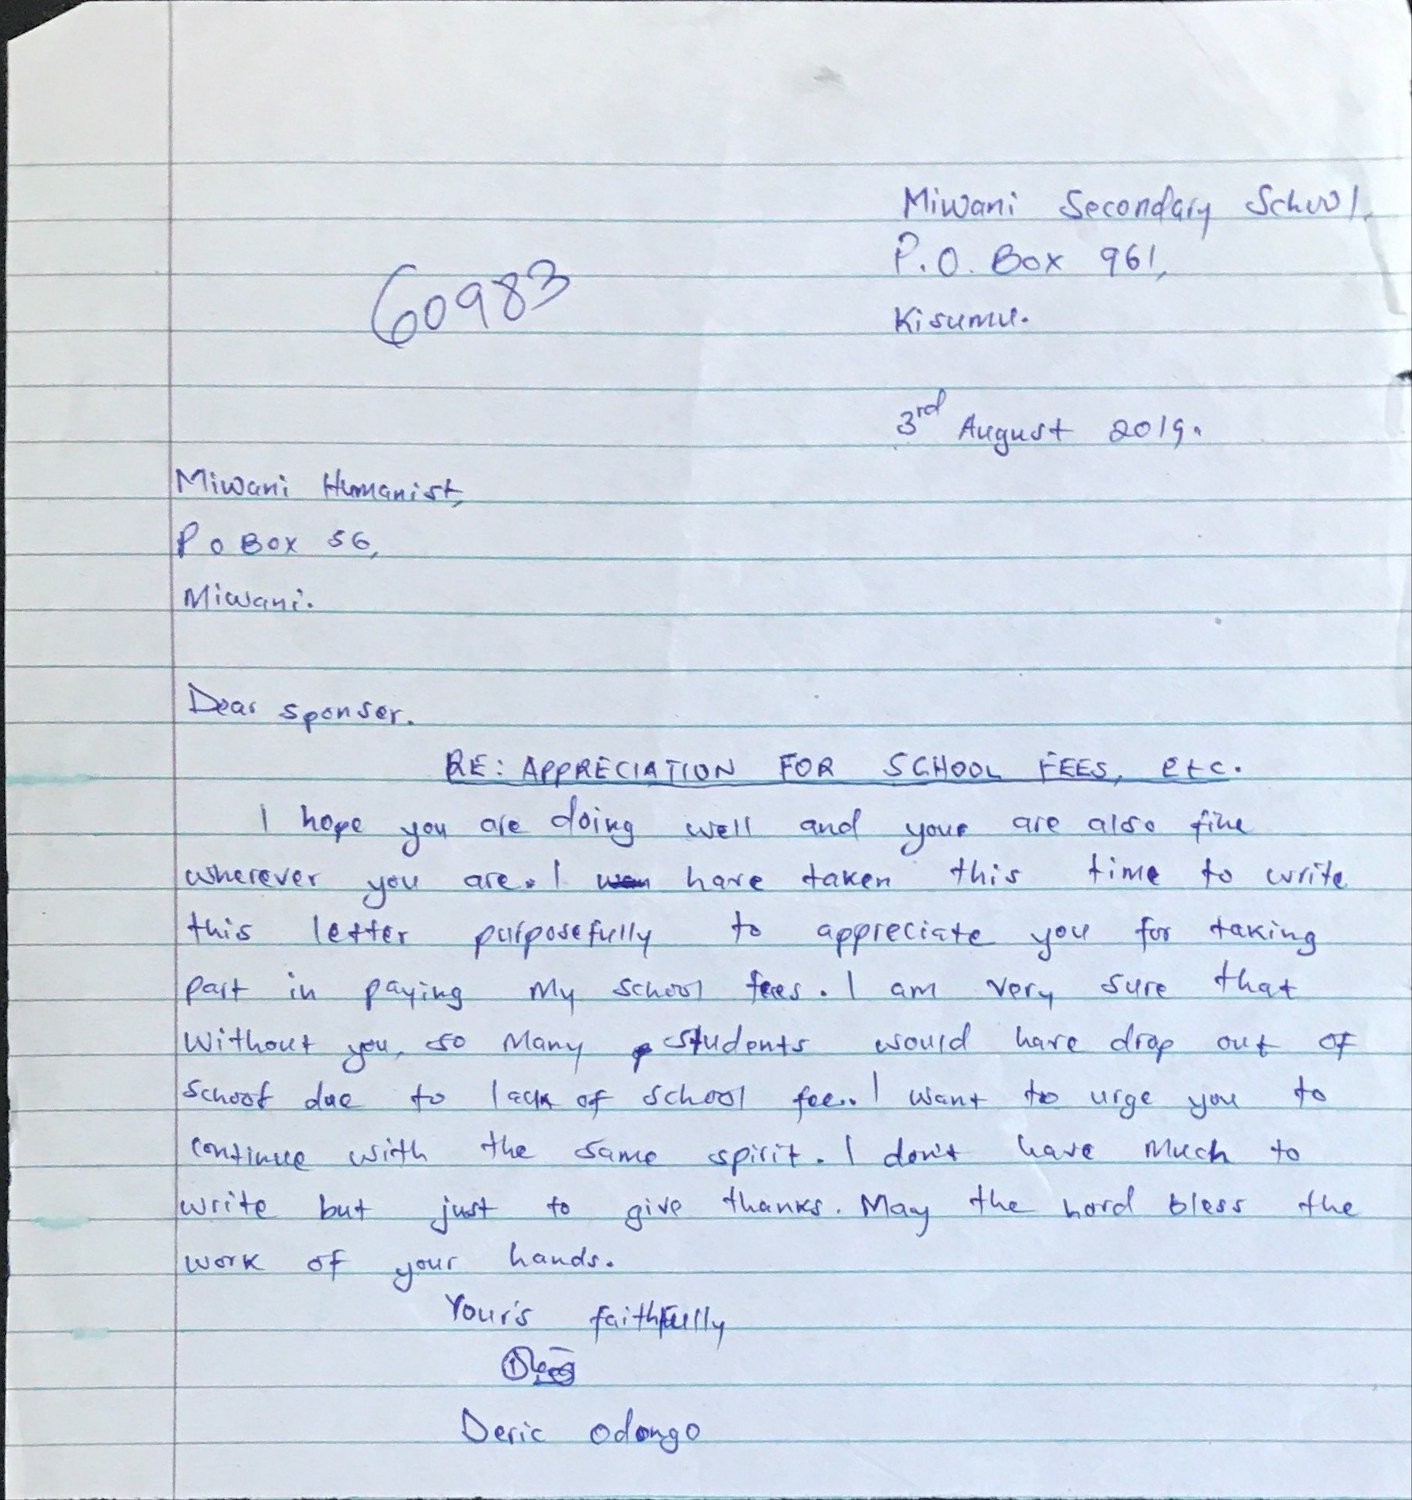 Miwani Secondary School,
P.O. Box 961,
60983
Kisumu.
3rd August 2019.
Miwani Humanist,
P O BOX 56,
Miwani.
Dear sponser.
RE: APPRECIATION FOR SCHOOL FEES, etc.
I hope you are doing well and your are also fine
wherever you are. I have taken this time to write
this letter purposefully to appreciate you for taking
part in paying my school fees. I am very sure that
without you, so many students would have drop out of
school due to lack of school fee.. I want to urge you to
continue with the same spirit. I don't have much to
write but just to give thanks. May the Lord bless the
work of your hands.
Your's faithfully
Deric Odongo